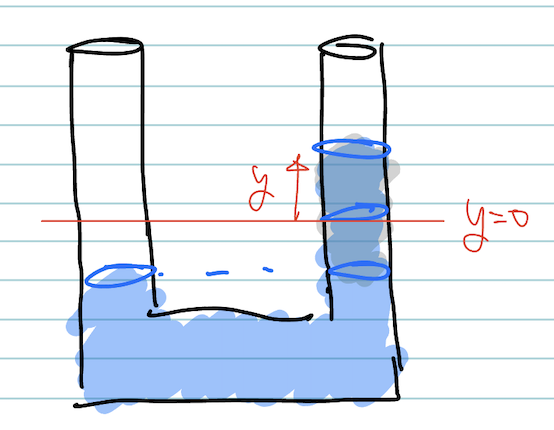 y
y=0